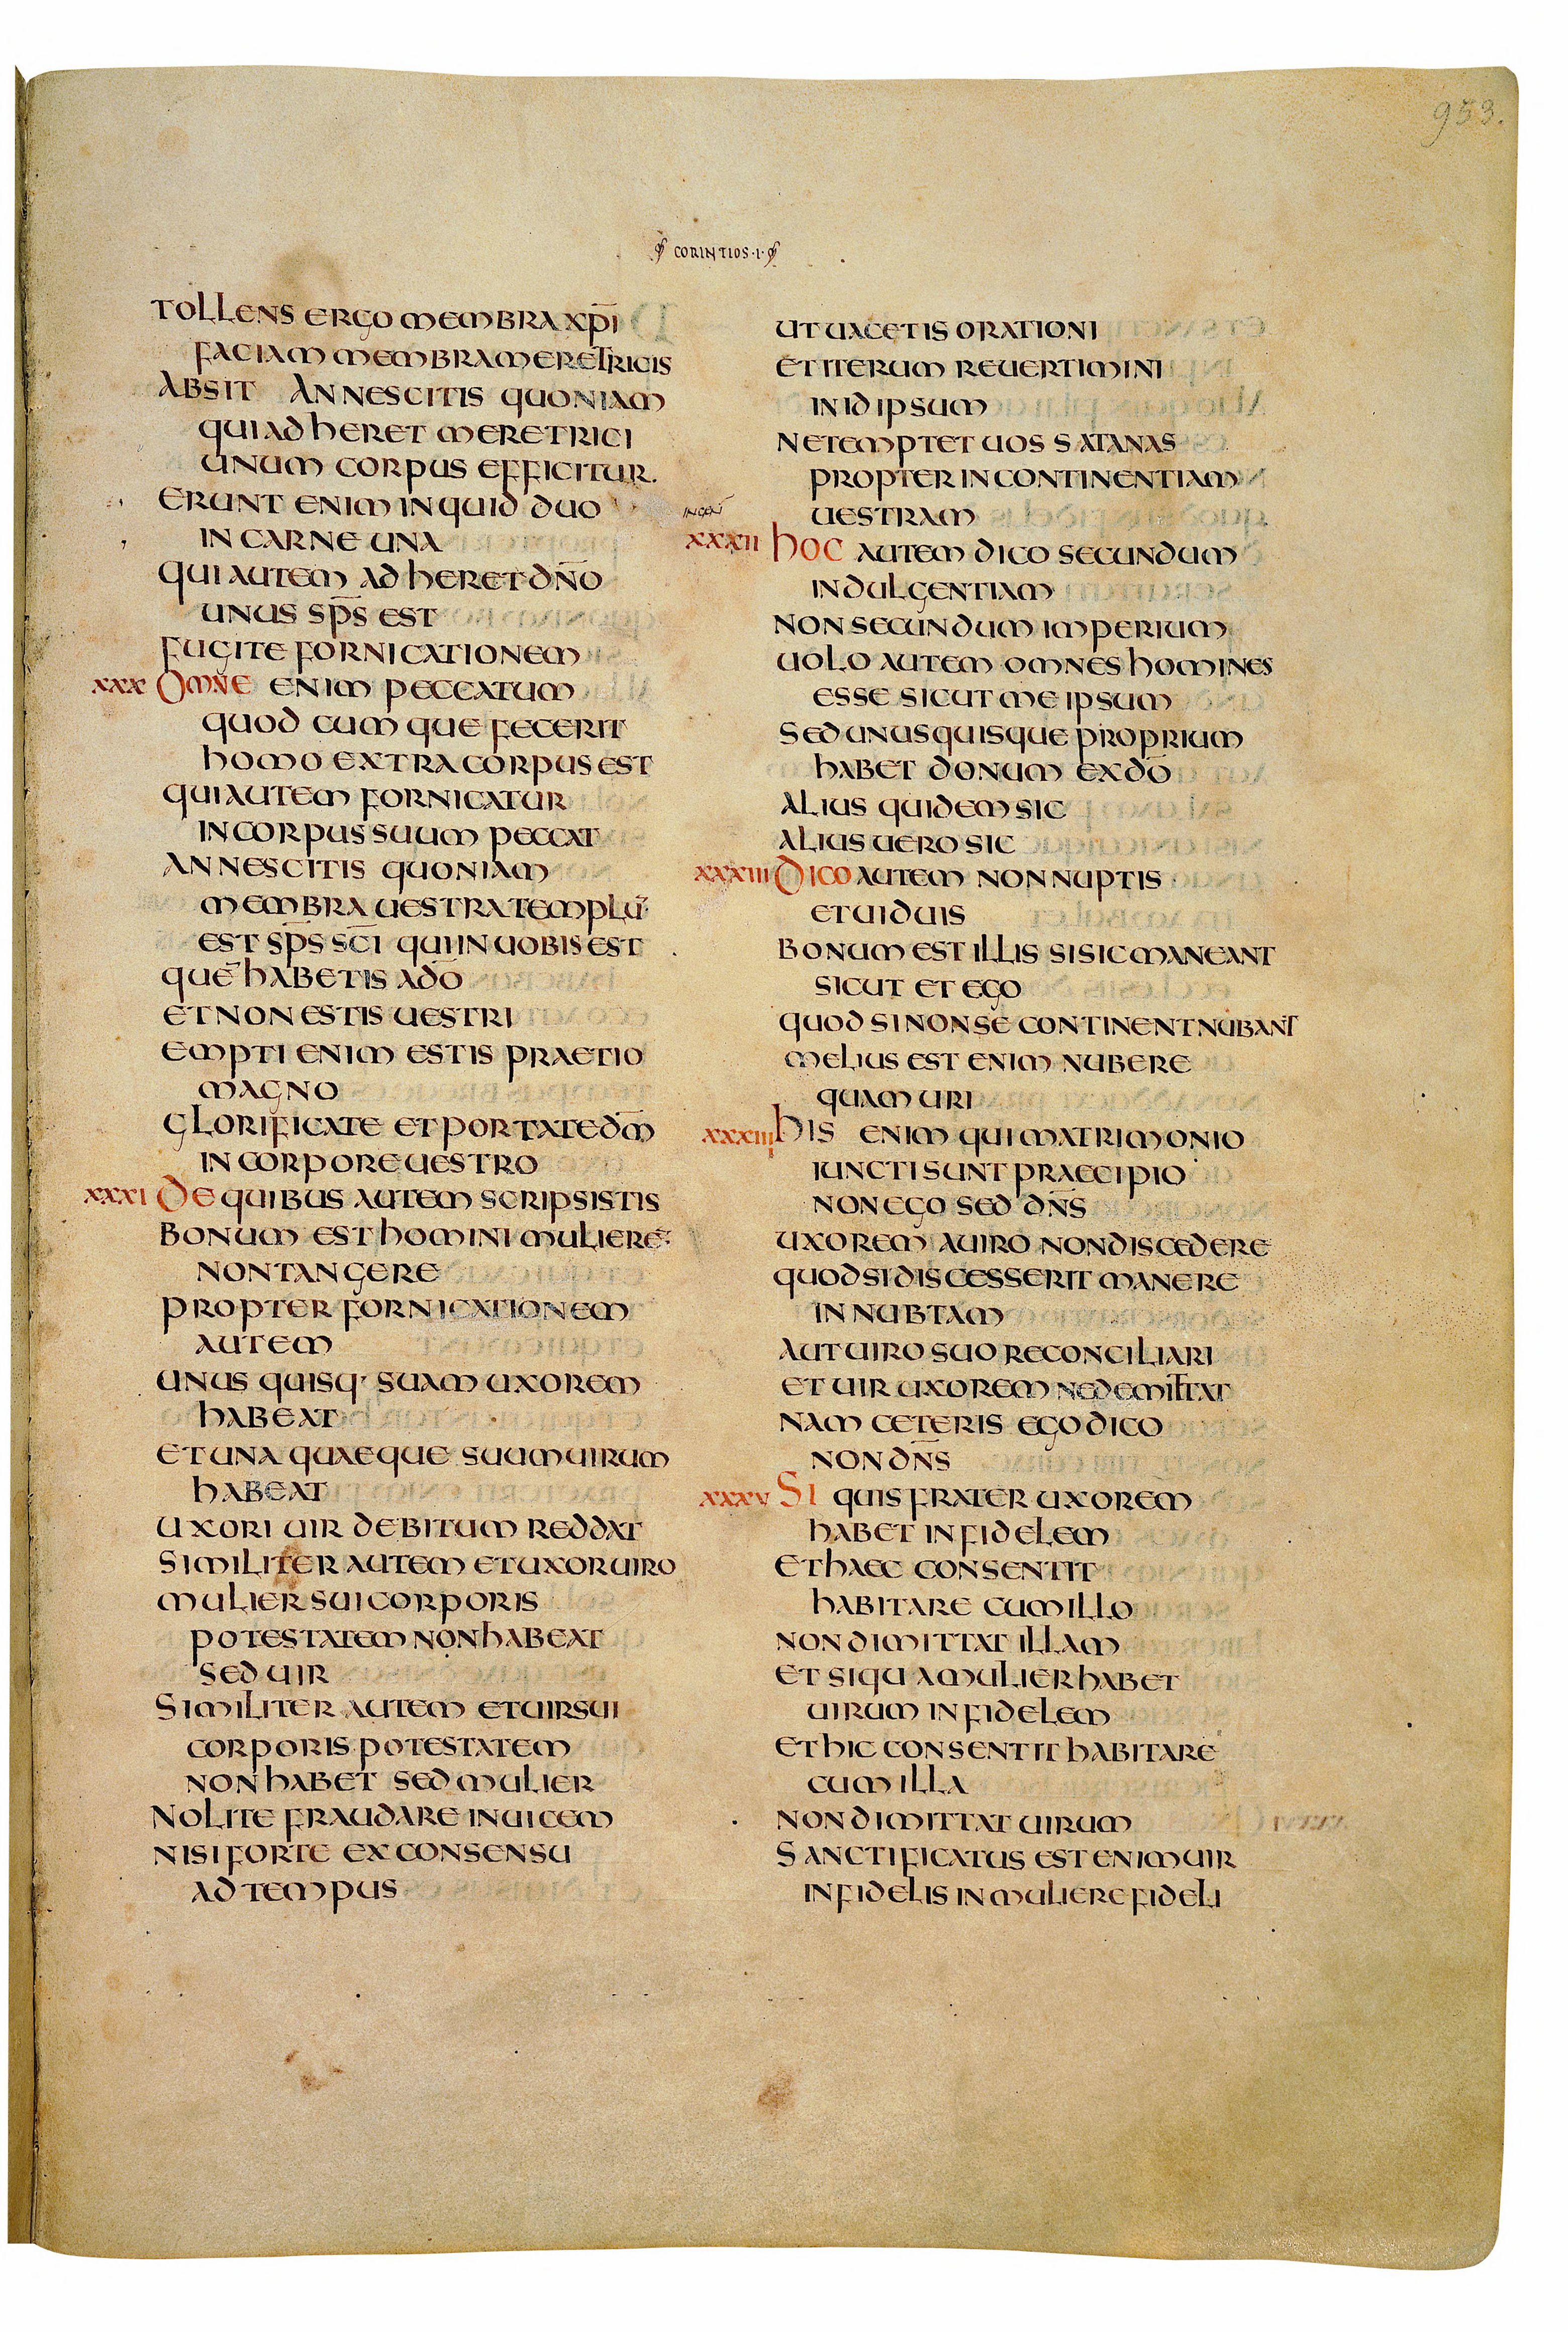 953.
CORINTIOS·I·
TOLLENS ERGO MEMBRA XP̅I
FACIAM MEMBRA MERETRICIS
ABSIT AN NESCITIS QUONIAM
QUI ADHERET MERETRICI
UNUM CORPUS EFFICITUR.
ERUNT ENIM INQUID DUO
IN CARNE UNA
QUI AUTEM ADHERET DN̅O
UNUS SP̅S EST
FUGITE FORNICATIONEM
XXX OMNE ENIM PECCATUM
QUODCUMQUE FECERIT
HOMO EXTRA CORPUS EST
QUI AUTEM FORNICATUR
IN CORPUS SUUM PECCAT
AN NESCITIS QUONIAM
MEMBRA UESTRA TEMPLU̅
EST SP̅S SC̅I QUI IN UOBIS EST
QUE̅ HABETIS A DO̅
ET NON ESTIS UESTRI
EMPTI ENIM ESTIS PRAETIO
MAGNO
GLORIFICATE ET PORTATE DM̅
IN CORPORE UESTRO
XXXI DE QUIBUS AUTEM SCRIPSISTIS
BONUM EST HOMINI MULIERE̅
NON TANGERE
PROPTER FORNICATIONEM
AUTEM
UNUSQUISQ· SUAM UXOREM
HABEAT
ET UNAQUAEQUE SUUM UIRUM
HABEAT
UXORI UIR DEBITUM REDDAT
SIMILITER AUTEM ET UXOR UIRO
MULIER SUI CORPORIS
POTESTATEM NON HABEAT
SED UIR
SIMILITER AUTEM ET UIR SUI
CORPORIS POTESTATEM
NON HABET SED MULIER
NOLITE FRAUDARE INUICEM
NISI FORTE EX CONSENSU
AD TEMPUS
UT UACETIS ORATIONI
ET ITERUM REUERTIMINI
IN ID IPSUM
NE TEMPTET UOS SATANAS
PROPTER INCONTINENTIAM
UESTRAM
XXXII HOC AUTEM DICO SECUNDUM
INDULGENTIAM
NON SECUNDUM IMPERIUM
UOLO AUTEM OMNES HOMINES
ESSE SICUT ME IPSUM
SED UNUSQUISQUE PROPRIUM
HABET DONUM EX DO̅
ALIUS QUIDEM SIC
ALIUS UERO SIC
XXXIII DICO AUTEM NON NUPTIS
ET UIDUIS
BONUM EST ILLIS SI SIC MANEANT
SICUT ET EGO
QUOD SI NON SE CONTINENT NUBANT
MELIUS EST ENIM NUBERE
QUAM URI
XXXIIII HIS ENIM QUI MATRIMONIO
IUNCTI SUNT PRAECIPIO
NON EGO SED DN̅S
UXOREM A UIRO NON DISCEDERE
QUOD SI DISCESSERIT MANERE
INNUBTAM
AUT UIRO SUO RECONCILIARI
ET UIR UXOREM NE DEMITTAT
NAM CETERIS EGO DICO
NON DN̅S
XXXV SI QUIS FRATER UXOREM
HABET INFIDELEM
ET HAEC CONSENTIT
HABITARE CUM ILLO
NON DIMITTAT ILLAM
ET SI QUA MULIER HABET
UIRUM INFIDELEM
ET HIC CONSENTIT HABITARE
CUM ILLA
NON DIMITTAT UIRUM
SANCTIFICATUS EST ENIM UIR
INFIDELIS IN MULIERE FIDELI